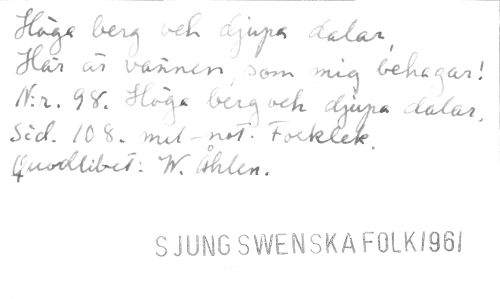 Höga berg och djupa dalar,
Här är vännen, som mig behagar!
N:r. 98. Höga berg och djupa dalar.
Sid. 108. mel-not. Folklek.
Quodlibet: W. Åhlen.
SJUNG SWENSKA FOLK 1961